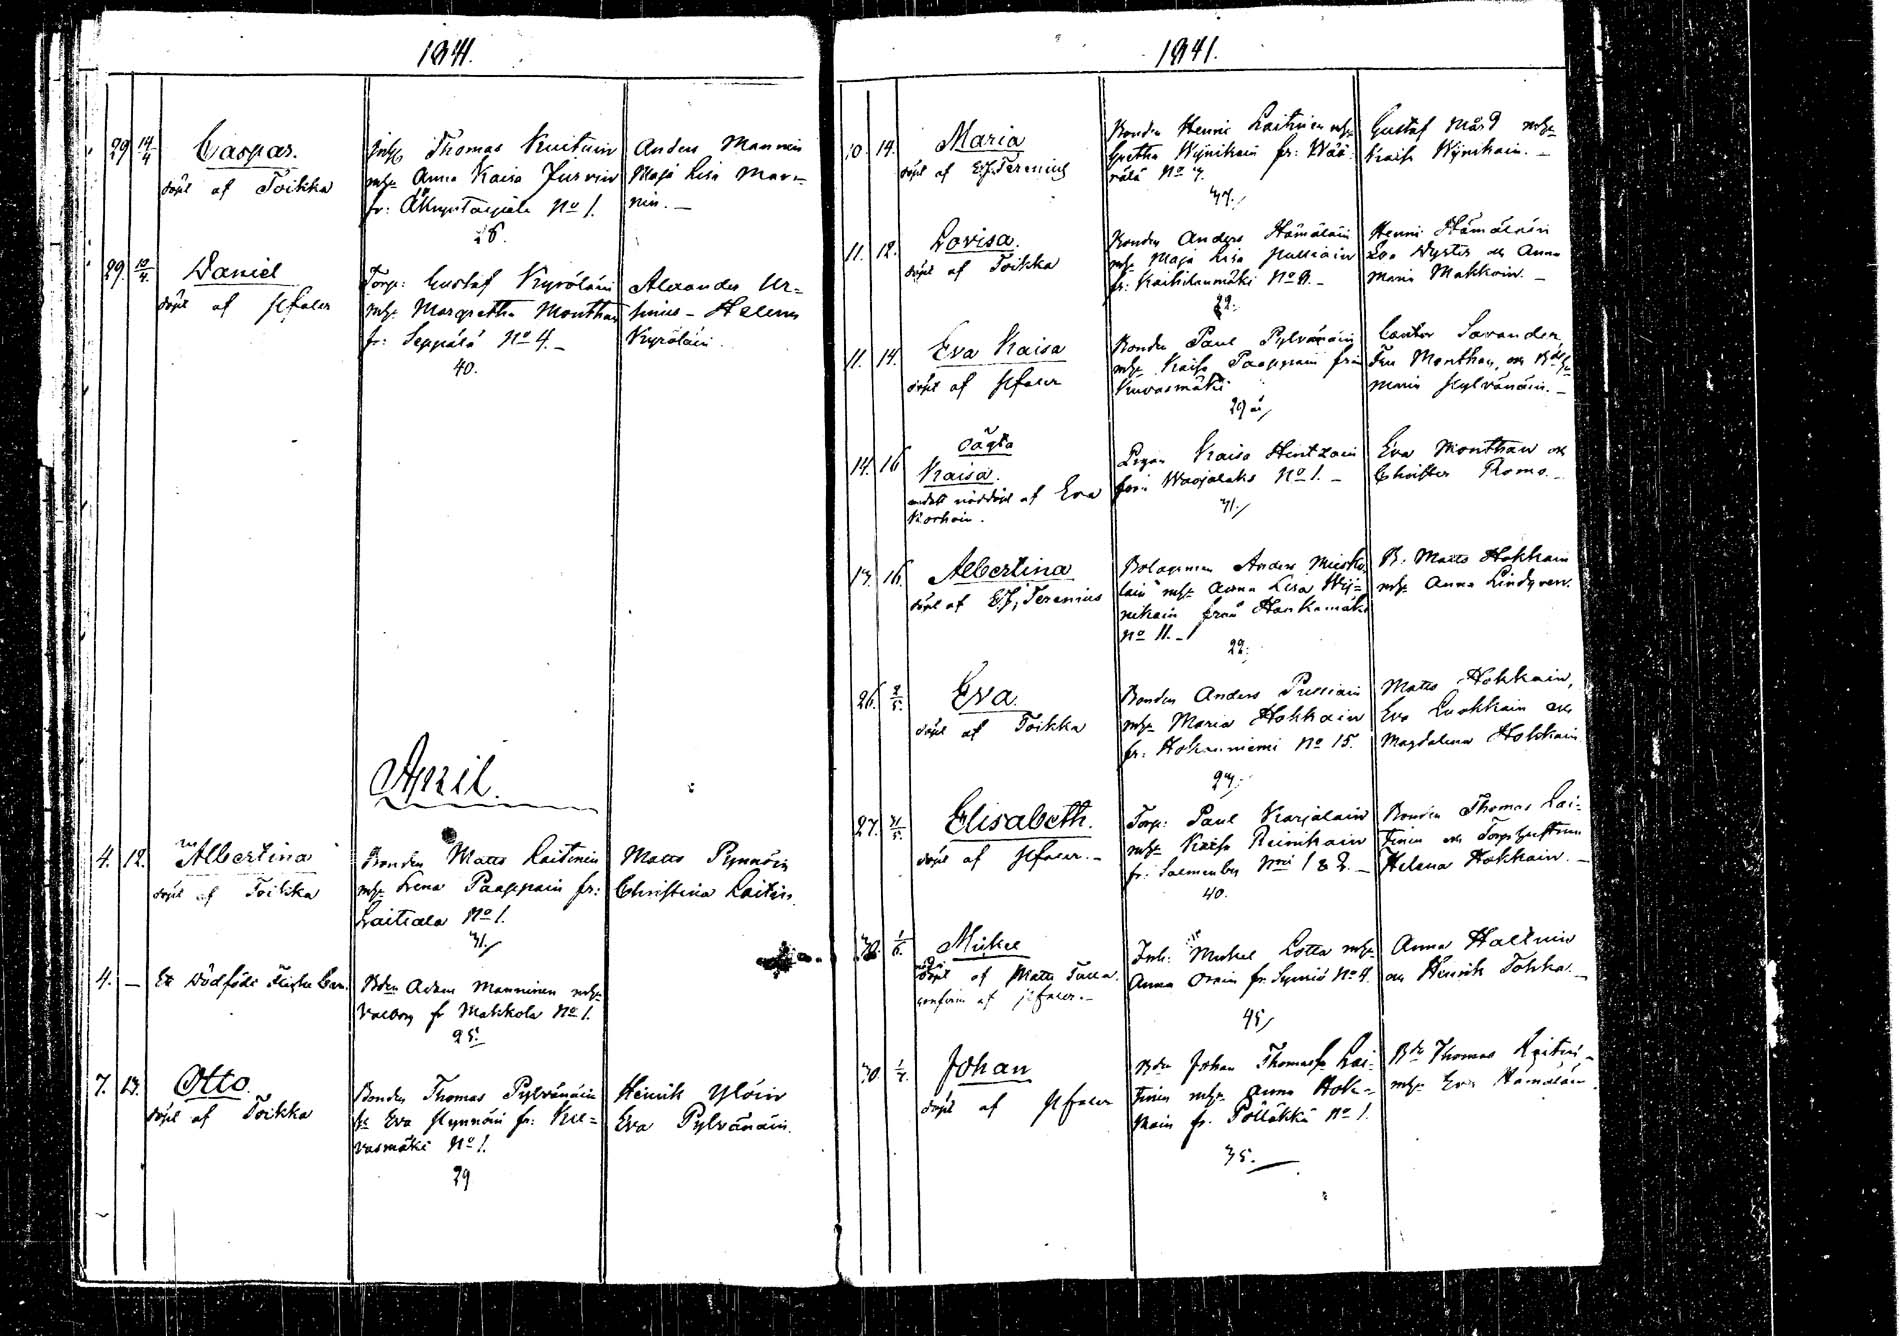 1841.
29 14/4 Caspar.
döpt af Toikka
Inh. Thomas Kuitunin
Anna Kaisa Jurvain
fr: No 1.
28.
Anders Mannin
Maja Lisa Mann=
nin. —
29. 10/4. Daniel
döpt af
Torp: Gustaf Kyröläin
Margretha Monthan
fr: Seppälä No 4. —
40.
Alexander Ur=
sinus — Helena
Kyröläin.
April.
4. 12. Albertina
döpt af Toikka
Bonden Matts Laitinin
Lena Paappain fr:
Laitiala No 1.
31./
Matts Pynnöin
Christina Laitin.
4. — Ett Dödfödt Flicke Barn.
Bdn Adam Manninen
Valborg fr Makkola No 1.
25.
7. 13. Otto.
döpt af Toikka
Bonden Thomas Pylvänäin
Eva Pynnöin fr: Kur=
vasmäki No 1.
29
Henrik Ylöin
Eva Pylvänäin.
1841.
10. 14. Maria
döpt af E.J. Ferenius
Bonden Henric Laitinen
Gretha Wijnikain fr: Wää
rälä No
37./
Gustaf Mård
Kaisa Wijnikain. —
11. 12. Lovisa.
döpt af Toikka
Bonden Anders Hämäläin
Maja Lisa Pulliain
fr: Kaihilanmäki No 9. —
22.
Henric Hämäläin
Eva Nyster och Anna
Maria Makkoin. —
11. 14. Eva Kaisa
döpt af
Bonden Paul Pylvänäin
Kaisa Paappain från
Kurvasmäki
29
Cantor Savander,
Fru Monthan, och
Maria Pylvänäin. —
14. 16 oägta
Kaisa.
nöddöpt af Eva
Korhoin.
Pigan Kaisa Hintzain
från Waajalaks No 1. —
31./
Eva Monthan och
Christer Romo. —
13. 16. Albertina
döpt af E.J. Ferenius
Bolagsman Anders Miettu
lain Anna Lisa Wij=
nikain från Hankamäki
No 11. —
22.
B. Matts Hokkain
Anna Lindqven.
26. 2/5. Eva.
döpt af Toikka
Bonden Anders Pulliain
Maria Hokkain
fr: Kokonniemi No 15.
27.
Matts Hokkain,
Eva Luokkain och
Magdalena Hokkain.
27. 31/5. Elisabeth.
döpt af
Torp: Paul Karjalain
Kaisa Reinikain
fr: Salmenby 1 & 2. —
40.
Bonden Thomas Lai=
tinin och Torp:hustrun
Helena Hokkain. —
30. 1/6. Mickel
döpt af Matts Tulla.
confirm af
Inh: Mickel Lotta
Anna Orain fr. No 4.
45/
Anna Hallin
och Henrik Tohka. —
30. Johan
döpt af
Bdn Johan Thomass. Lai=
tinin Anna Hok=
kain fr. Pölläkkä No 1.
35. —
Bdn Thomas Laitin —
Eva Hämäläin.